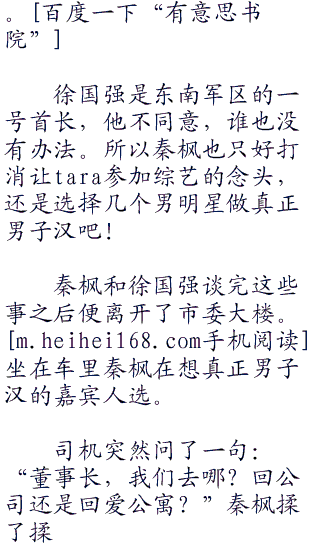 。[百度一下“有意思书
院”]
徐国强是东南军区的一
号首长，他不同意，谁也没
有办法。所以秦枫也只好打
消让tara参加综艺的念头，
还是选择几个男明星做真正
男子汉吧！
秦枫和徐国强谈完这些
事之后便离开了市委大楼。
[m.heihei168.com手机阅读]
坐在车里秦枫在想真正男子
汉的嘉宾人选。
司机突然问了一句：
“董事长，我们去哪？回公
司还是回爱公寓？”秦枫揉
了揉